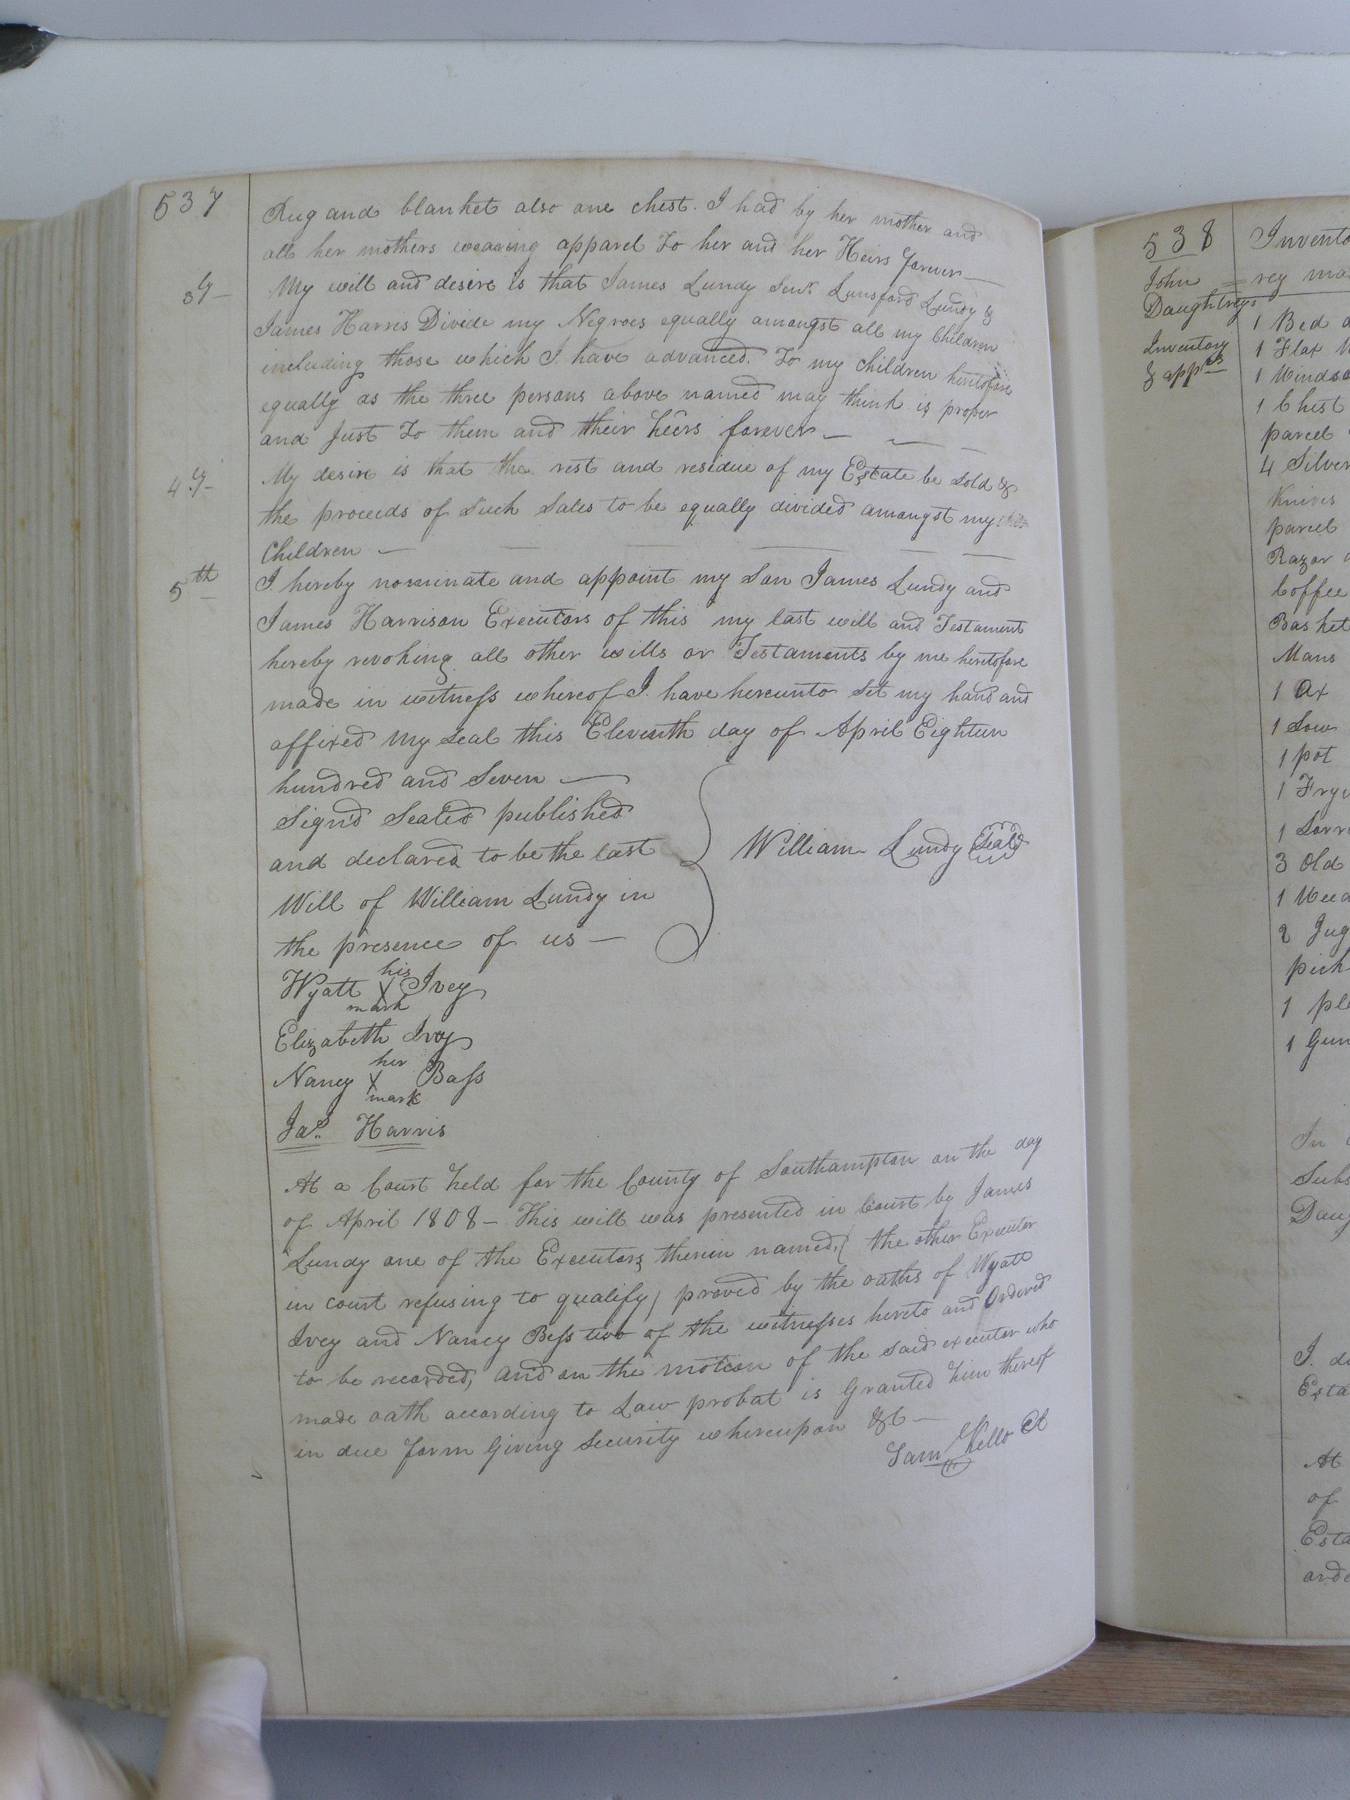 537
Rug and blanket also one chest. I had by her mother and
all her mothers wearing apparel to her and her Heirs forever —
3ly — My will and desire is that James Lundy Senr. Lunsford Lundy &
James Harris Divide my Negroes equally amongst all my Children
including those which I have advanced to my children heretofore
equally as the three persons above named may think is proper
and Just to them and their heirs forever —
4ly — My desire is that the rest and residue of my Estate be sold &
the proceeds of such Sales to be equally divided amongst my
Children —
5th I hereby nominate and appoint my Son James Lundy and
James Harrison Executors of this my last will and Testament
hereby revoking all other wills or Testaments by me heretofore
made in witness whereof I have hereunto set my hand and
affixed my seal this Eleventh day of April Eighteen
hundred and Seven —
Sign'd Sealed published
and declared to be the last
Will of William Lundy in
the presence of us —
William Lundy (Seal)
Wyatt his X mark Ivey
Elizabeth Ivey
Nancy her X mark Bass
Jas. Harris
At a Court held for the County of Southampton on the day
of April 1808 — This will was presented in Court by James
Lundy one of the Executors therein named, ( the other Executor
in court refusing to qualify ) proved by the oaths of Wyatt
Ivey and Nancy Bess two of the witnesses hereto and Ordered
to be recorded, and on the motion of the said executor who
made oath according to Law probat is Granted him thereof
in due form Giving Security whereupon &c —
Sam Kello Ct
538
John
Daughtreys
Inventory
& apprt
Invento
rey ma
1 Bed
1 Flax
1 Windso
1 Chest
parcel
4 Silver
Knives
parcel
Razor
Coffee
Basket
Mans
1 Ax
1 Sow
1 pot
1 Fryi
1 Sorr
3 Old
1 Weed
2 Jug
pick
1 pl
1 Gun
In
Subs
Daug
I. d
Esta
At
of
Esta
orde